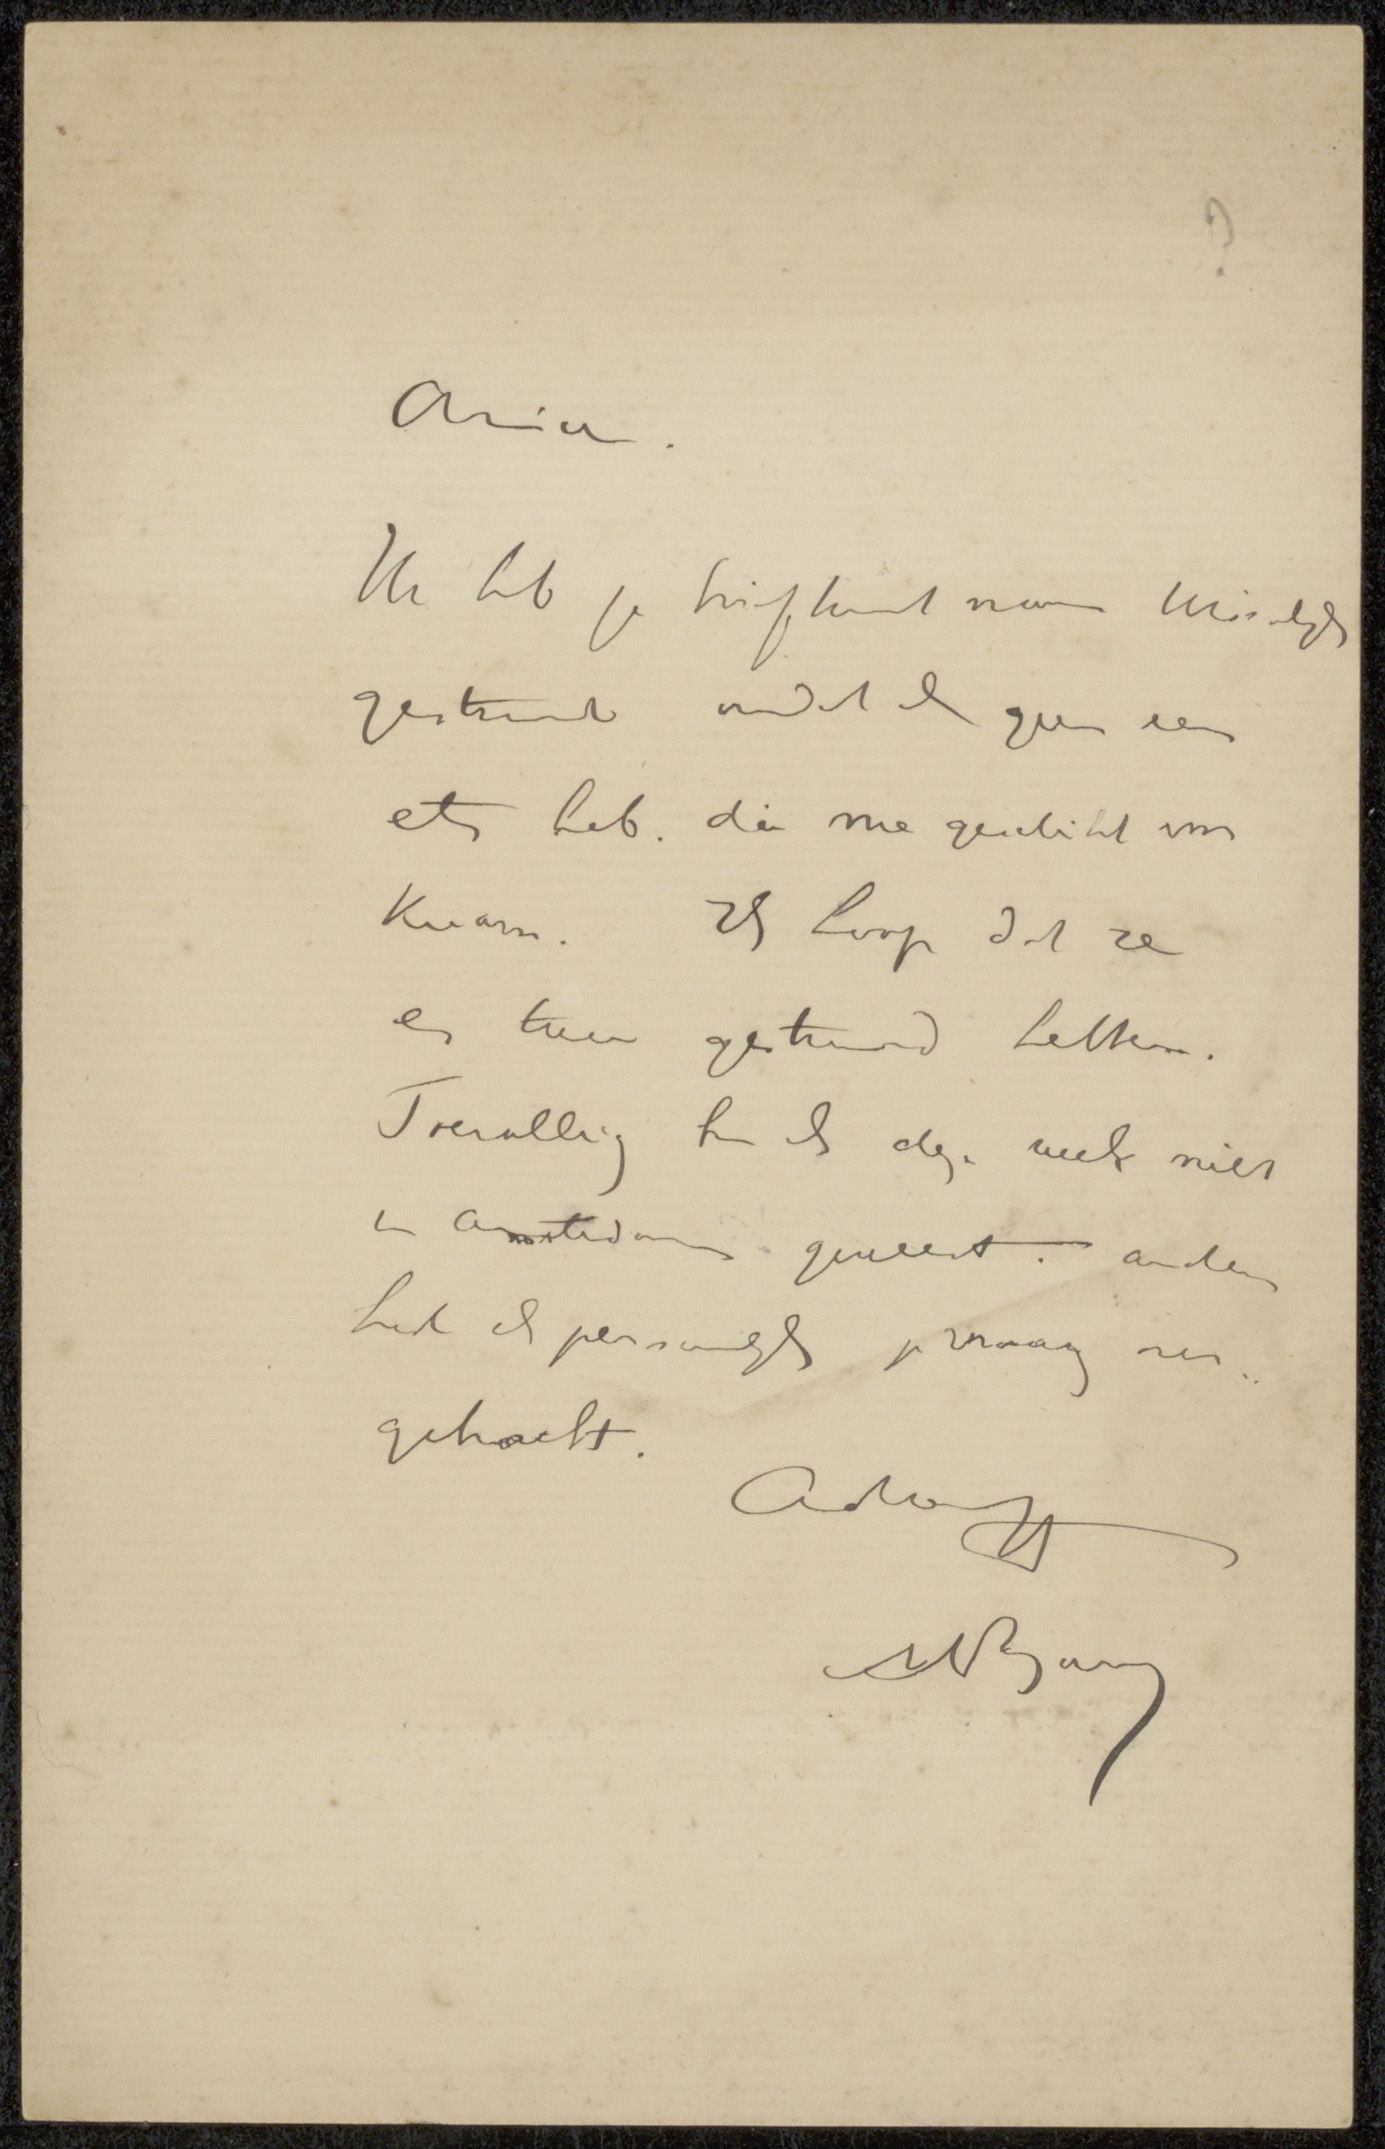 ?
Amice.
Ik heb je briefkaart naar
gestuurd omdat ik geen een
ets heb. die me geschikt voor
kwam. Ik hoop dat ze
er twee gestuurd hebben.
Toevallig ben ik deze week niet
in Amsterdam geweest. anders
had ik persoonlijk je vraag over..
gebracht.